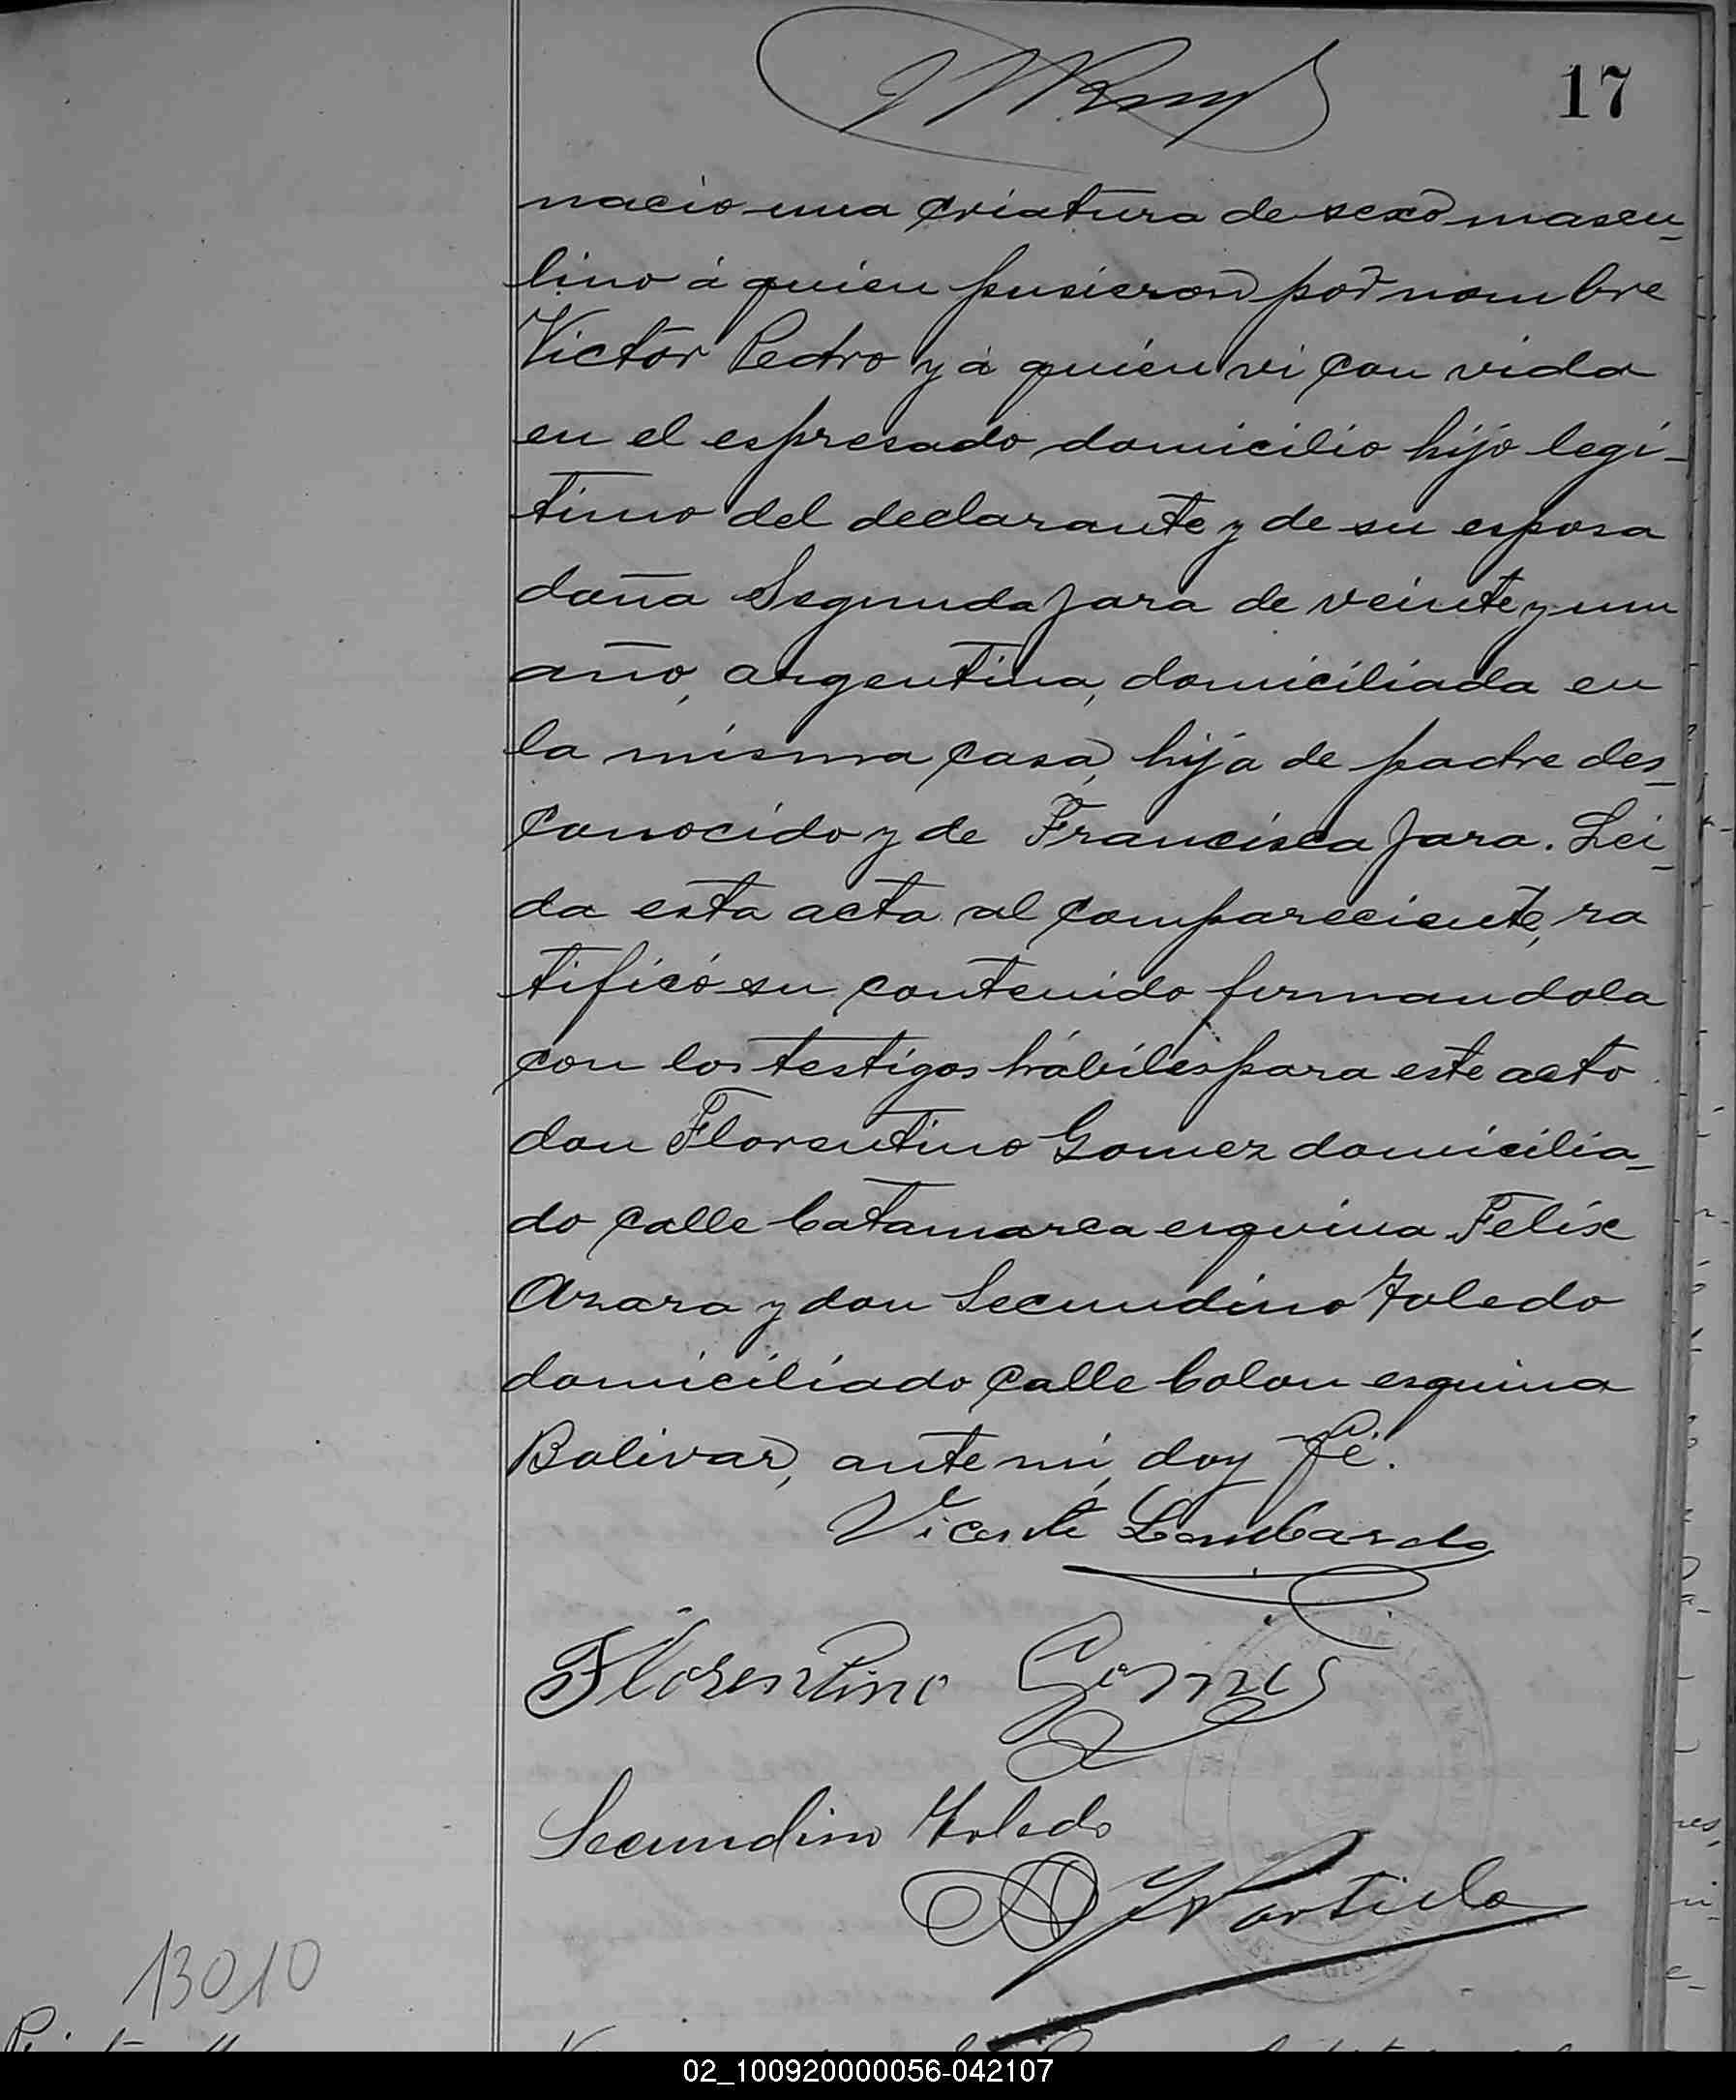 17
nacio una criatura de sexo mascu-
lino á quien pusieron por nombre
Victor Pedro y á quien vi con vida
en el espresado domicilio hijo legi-
timo del declarante y de su esposa
doña Segunda Jara de veinte y un
año, argentina, domiciliada en
la misma casa, hija de padre des-
conocido y de Francisca Jara. Lei-
da esta acta al compareciente, ra
tificó su contenido firmandola
con los testigos hábiles para este acto
don Florentino Gomez domicilia-
do calle Catamarca esquina Felix
Azara y don Secundino Toledo
domiciliado calle Colon esquina
Bolivar, ante mi, doy fé.
Vicente Lombardo
Florentino Gomez
Secundino Toledo
13010
02_100920000056-042107